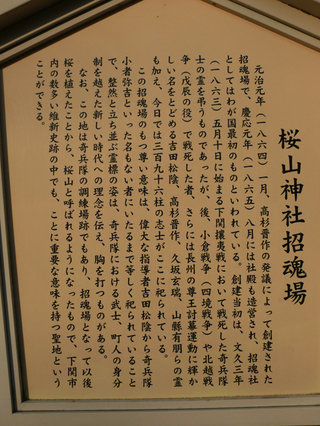 桜山神社招魂場
元治元年（一八六四）一月、高杉晋作の発議によって創建された
招魂場で、慶応元年（一八六五）八月には社殿も造営され、招魂社
としてはわが国最初のものといわれている。創建当初は、文久三年
（一八六三）五月十日に始まる下関攘夷戦において戦死した奇兵隊
士の霊を弔うものであったが、後、小倉戦争（四境戦争）や北越戦
争（戊辰の役）で戦死した者、さらには長州の尊王討幕運動に輝か
しい名をとどめる吉田松陰、高杉晋作、久坂玄瑞、山縣有朋らの霊
も加え、今日では三百九十六柱の志士がここに祀られている。
この招魂場のもつ尊い意味は、偉大な指導者吉田松陰から奇兵隊
小者弥吉といった名もない者にいたるまで等しく祀られていること
で、整然と立ち並ぶ霊標の姿は、奇兵隊における武士、町人の身分
制を越えた新しい時代への理念を伝え、胸を打つものがある。
なお、この地は奇兵隊の訓練場跡でもあり、招魂場となって以後
桜を植えたことから、桜山と呼ばれるようになったもので、下関市
内の数多い維新史跡の中でも、ことに重要な意味を持つ聖地という
ことができる。